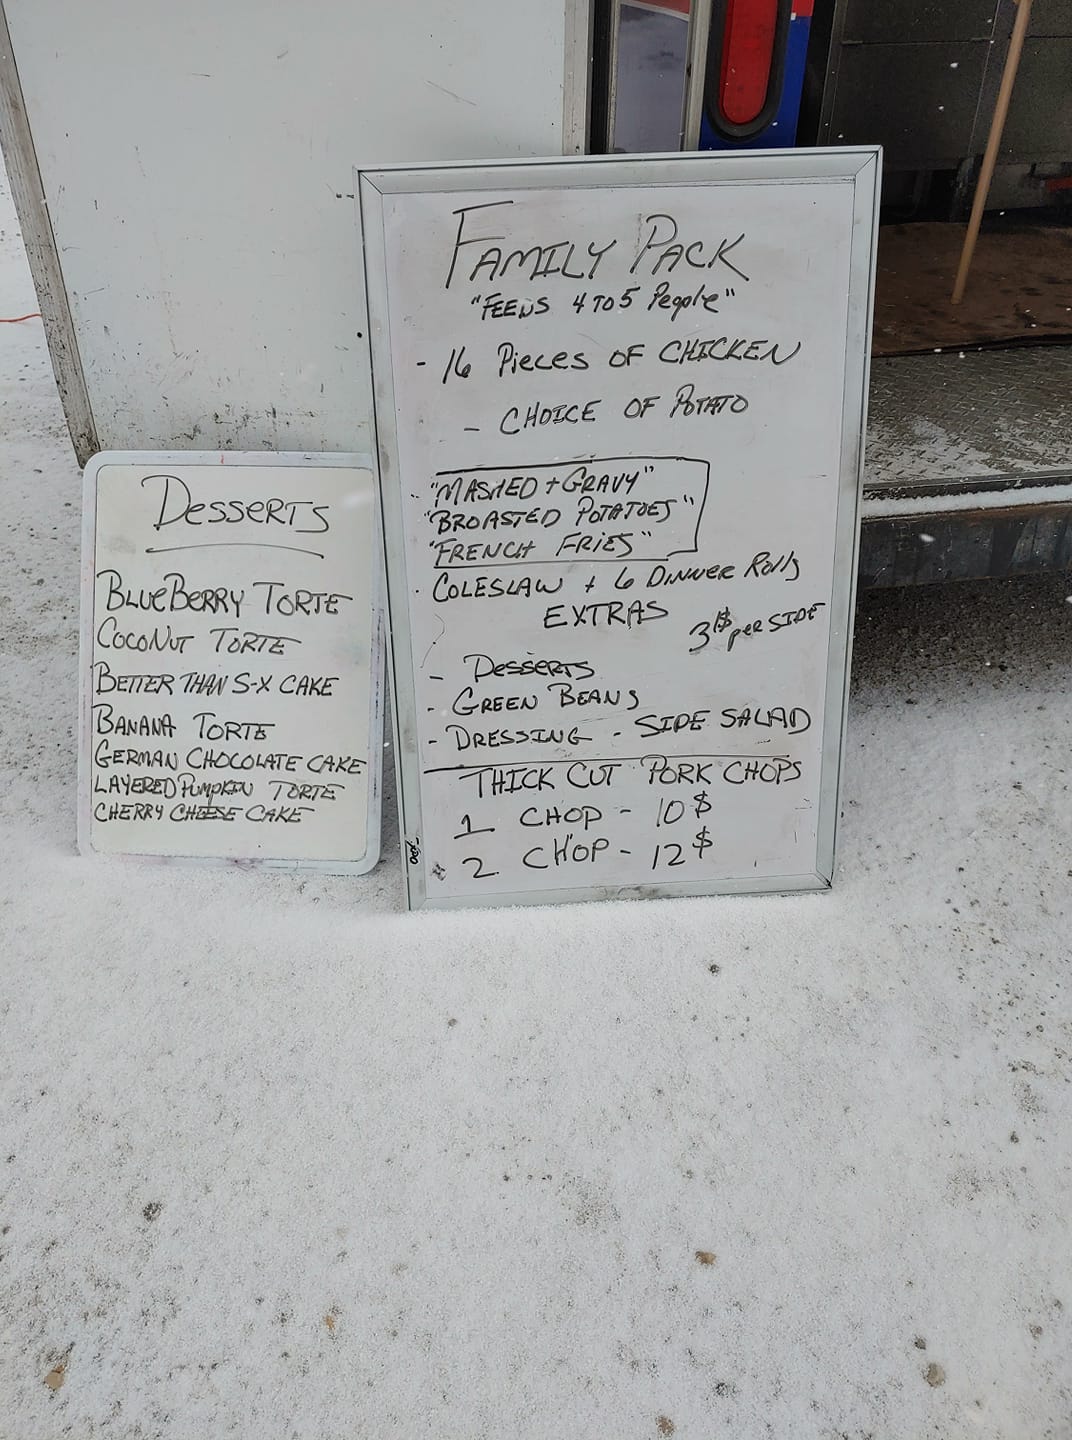 FAMILY PACK
"FEEDS 4 TO 5 People"
- 16 Pieces OF CHICKEN
- CHOICE OF POTATO
"MASHED + GRAVY"
"BROASTED POTATOES"
"FRENCH FRIES"
COLESLAW + 6 DINNER Rolls
EXTRAS
3$ per SIDE
- DESSERTS
- GREEN BEANS
- DRESSING - SIDE SALAD
THICK CUT PORK CHOPS
1 CHOP - 10$
2 CHOP - 12$
DESSERTS
BLUEBERRY TORTE
COCONUT TORTE
BETTER THAN S-X CAKE
BANANA TORTE
GERMAN CHOCOLATE CAKE
LAYERED PUMPKIN TORTE
CHERRY CHEESE CAKE